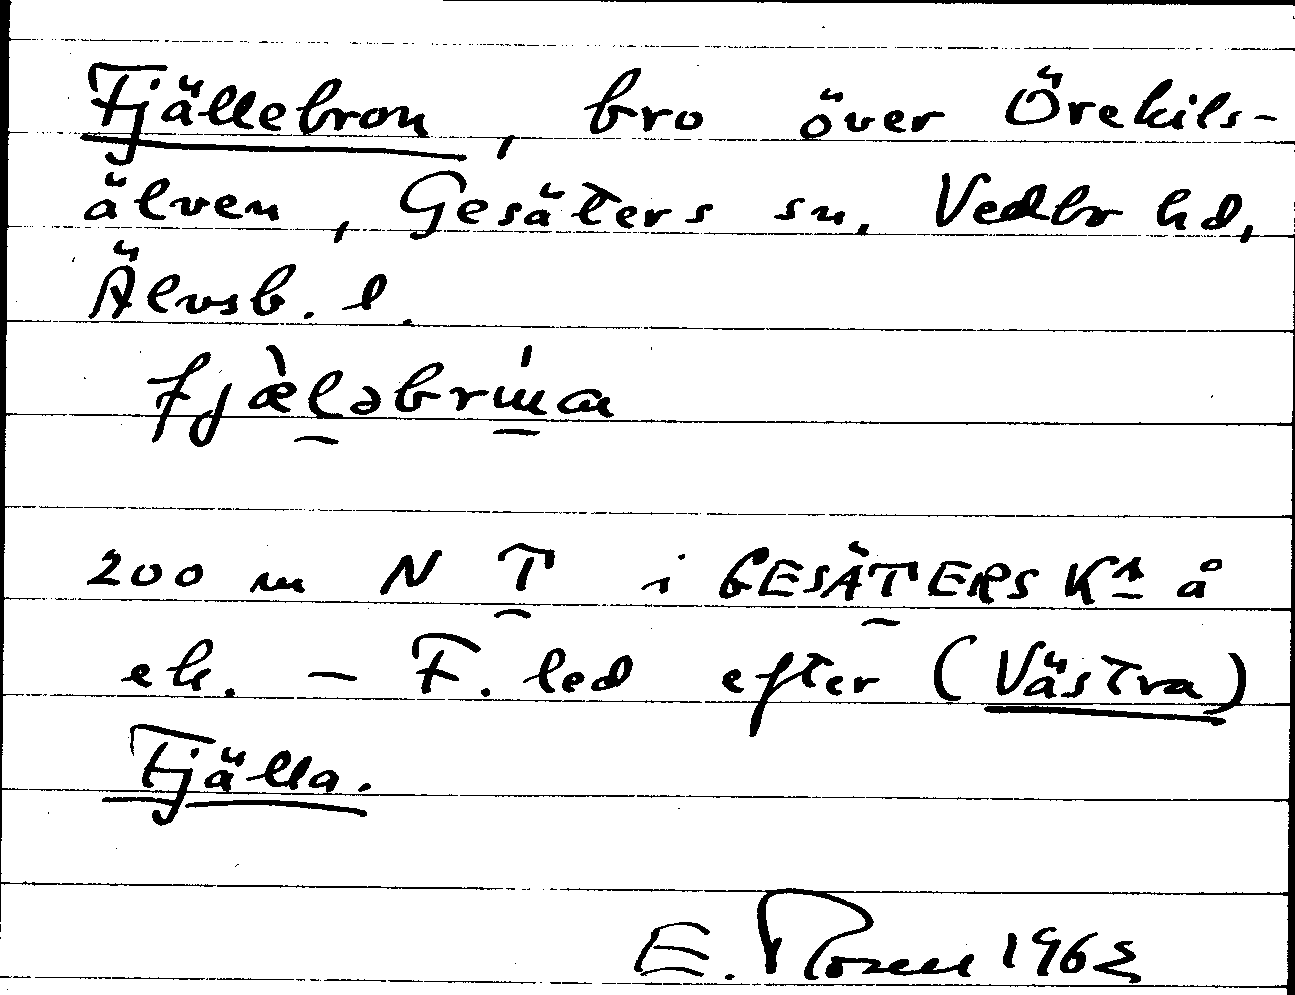 Fjällebron, bro över Örekils-
älven, Gesäters sn, Vedbo hd,
Älvsb. l.
200 m N T i GESÄTERS Ka å
ek. – F. led efter (Västra)
Fjälla.
E. Rosen 1962